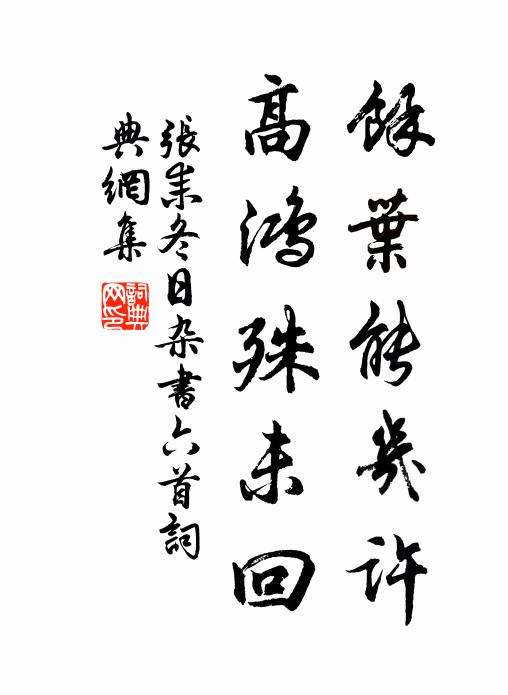 餘葉能幾許
高鴻殊未回
張耒冬日杂書六首詞
典網集
詞典网印